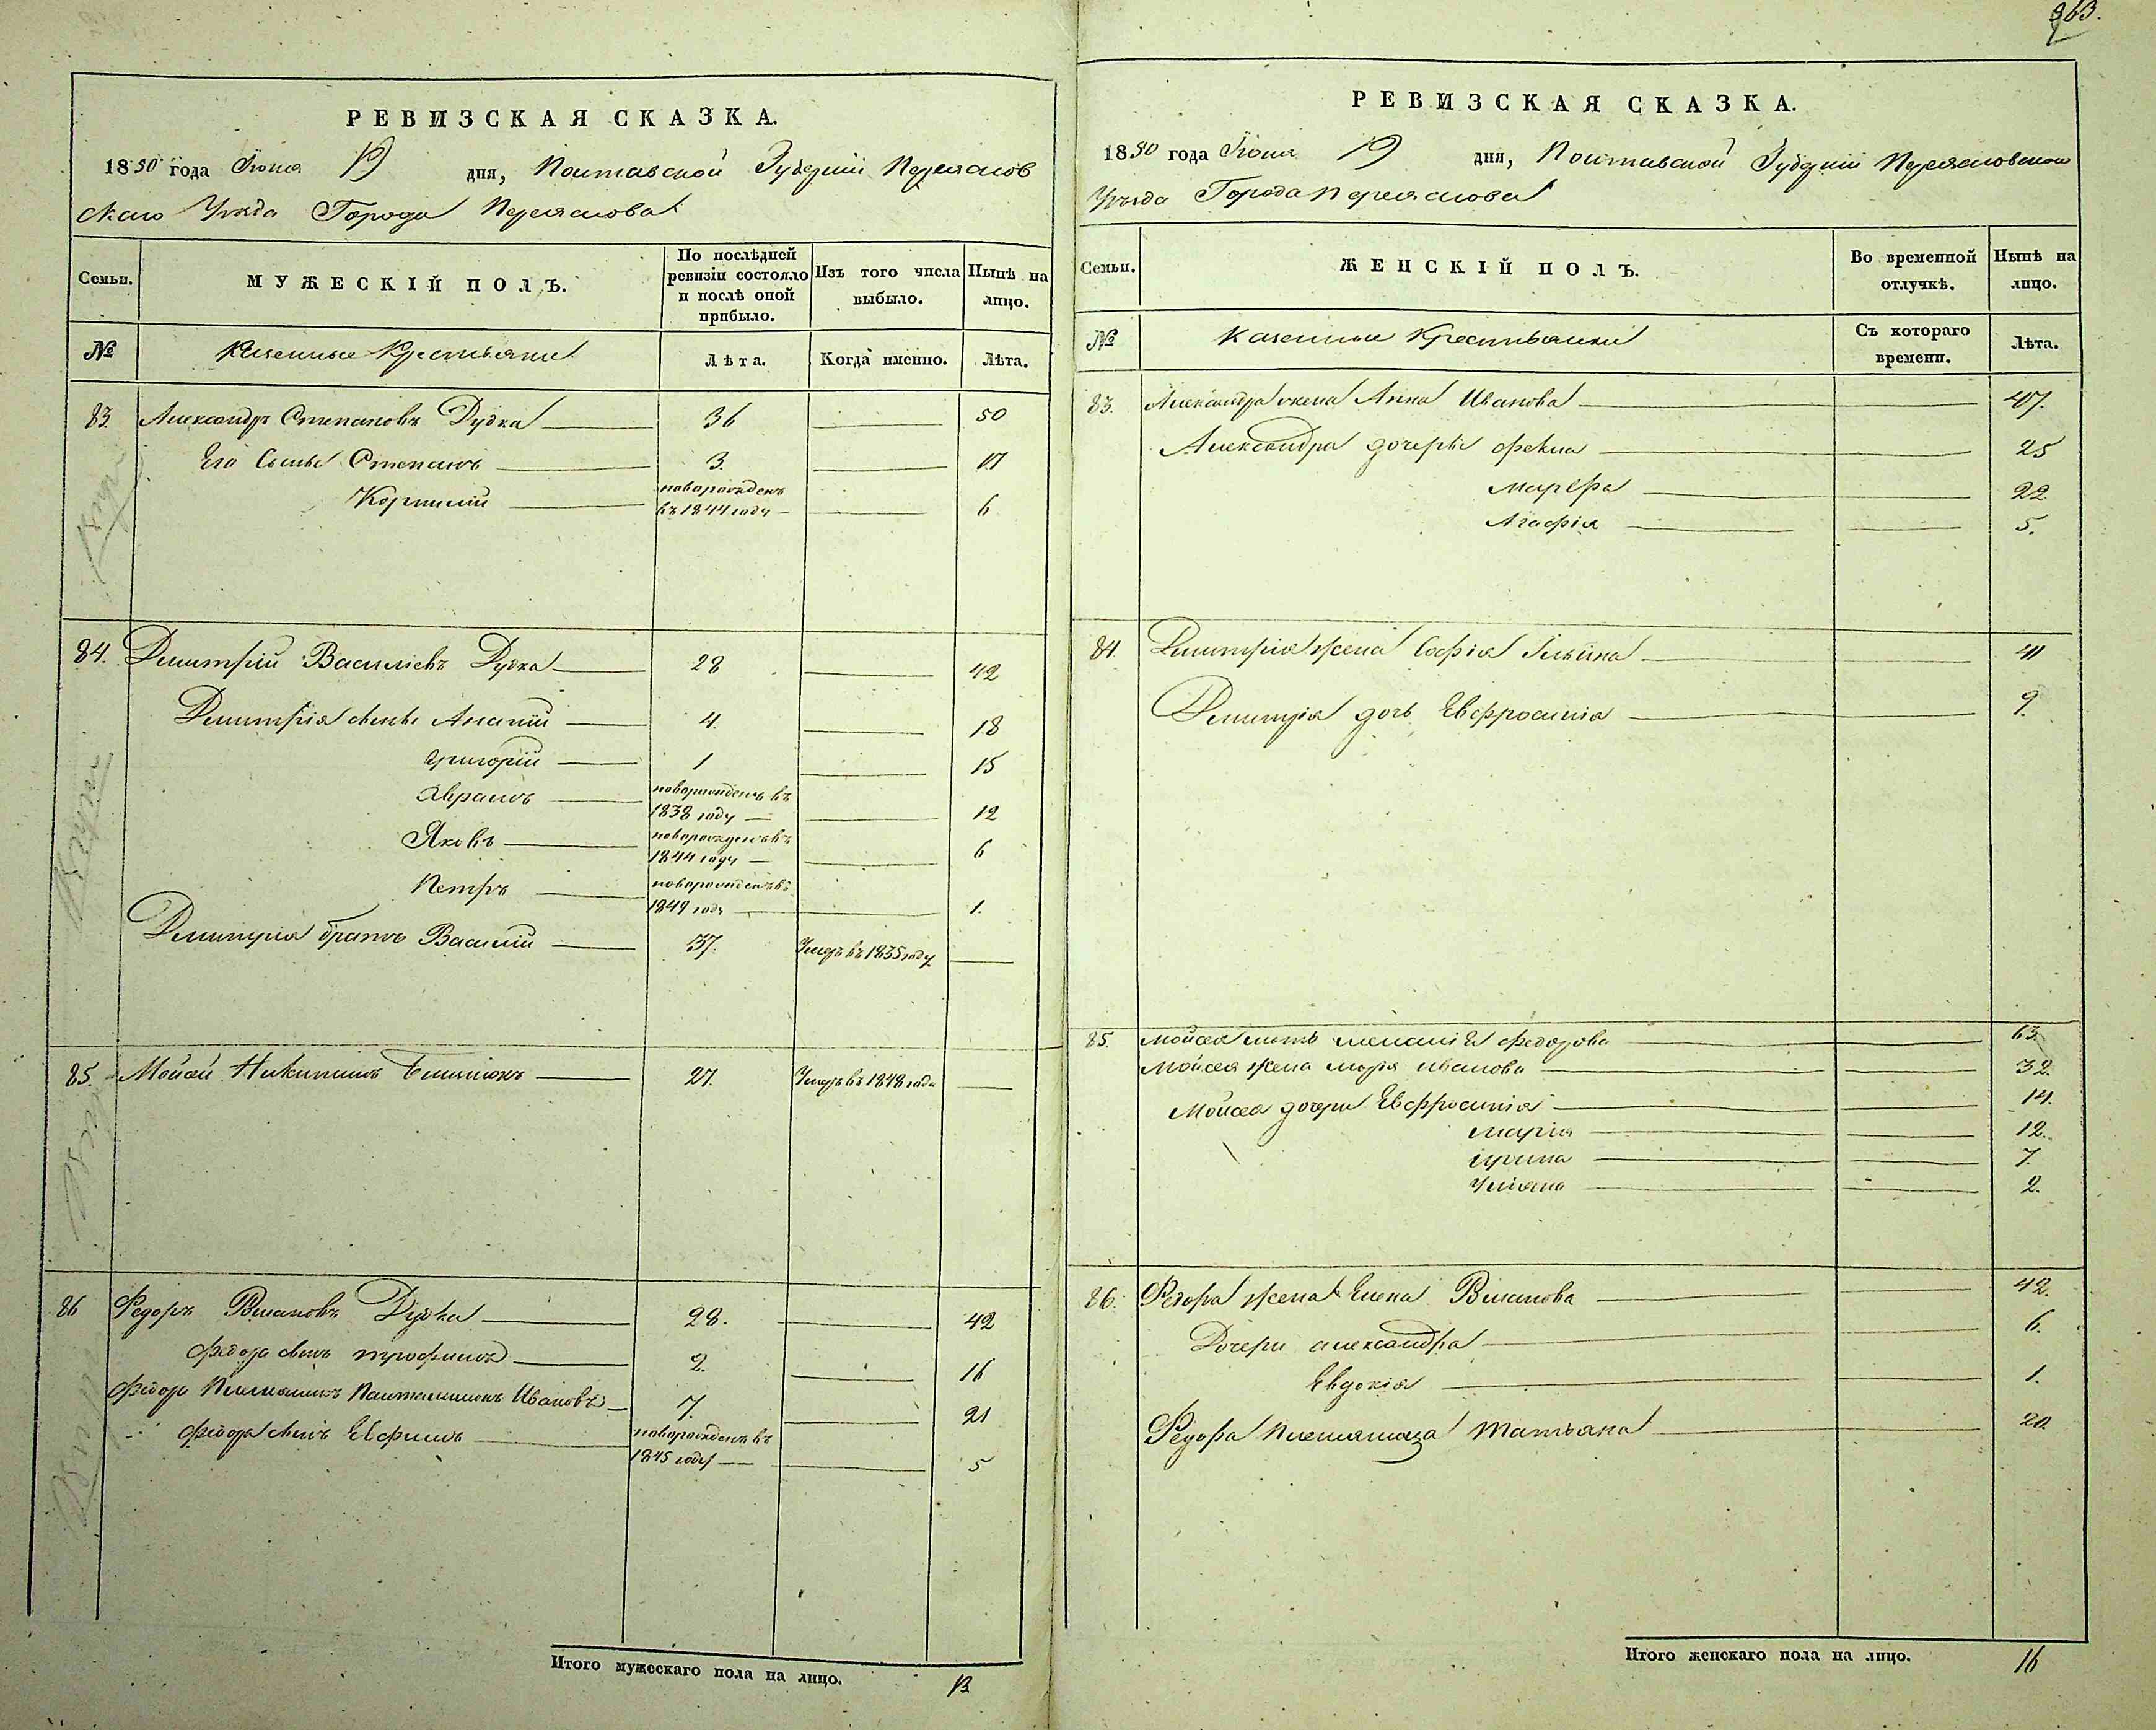 963.
РЕВИЗСКАЯ СКАЗКА.
1850 года Іюня 19 дня, Полтавской Губерніи Переяслов
скаго Уѣзда Города Переяслова
Семьи. МУЖЕСКІЙ ПОЛЪ. По послѣдней ревизіи состояло и послѣ оной прибыло. Изъ того числа выбыло. Нынѣ на лицо.
№ Казенные Крестьяне Лѣта. Когда именно. Лѣта.
83. Александръ Степановъ Дудка 36 50
Его Сынъ Степанъ 3. 17
Корнилій новорожденъ въ 1844 году 6
84. Димитрій Василіевъ Дудка 28 42
Димитрія сынъ Ананій 4. 18
Григорій 1 15
Аврамъ новорожденъ въ 1838 году 12
Яковъ новорожденъ въ 1844 году 6
Петръ новорожденъ въ 1849 году 1.
Димитрія братъ Василій 37. Умеръ въ 1835 году
85. Мойсей Никитинъ 27. Умеръ въ 1848 года
86 Федоръ Дудка 28. 42
Федора сынъ Трофимъ 2. 16
Федора Племянникъ Пантелимонъ Ивановъ 7. 21
Федора сынъ Евфимъ новорожденъ въ 1845 году 5
Итого мужескаго пола на лицо. 13
РЕВИЗСКАЯ СКАЗКА.
1850 года Іюня 19 дня, Полтавской Губерніи Переясловскаго
Уѣзда Города Переяслова
Семьи. ЖЕНСКІЙ ПОЛЪ. Во временной отлучкѣ. Нынѣ на лицо.
№ Казенные Крестьянки Съ котораго времени. Лѣта.
83. Александра жена Анна Иванова 47.
Александра дочери Фекла 25
Марфа 22
Агафія 5.
84. Димитрія жена Софія Ильина 41
Димитрія дочь Евфросинія 9.
85. Мойсея мать Меланія Федорова 63.
Мойсея жена Марія Иванова 32.
Мойсея дочери Евфросинія 14.
Марія 12.
Ирина 7.
Уліяна 2.
86. Федора жена Елена 42.
Дочери Александра 6.
Евдокія 1.
Федора племянница Татьяна 20
Итого женскаго пола на лицо. 16